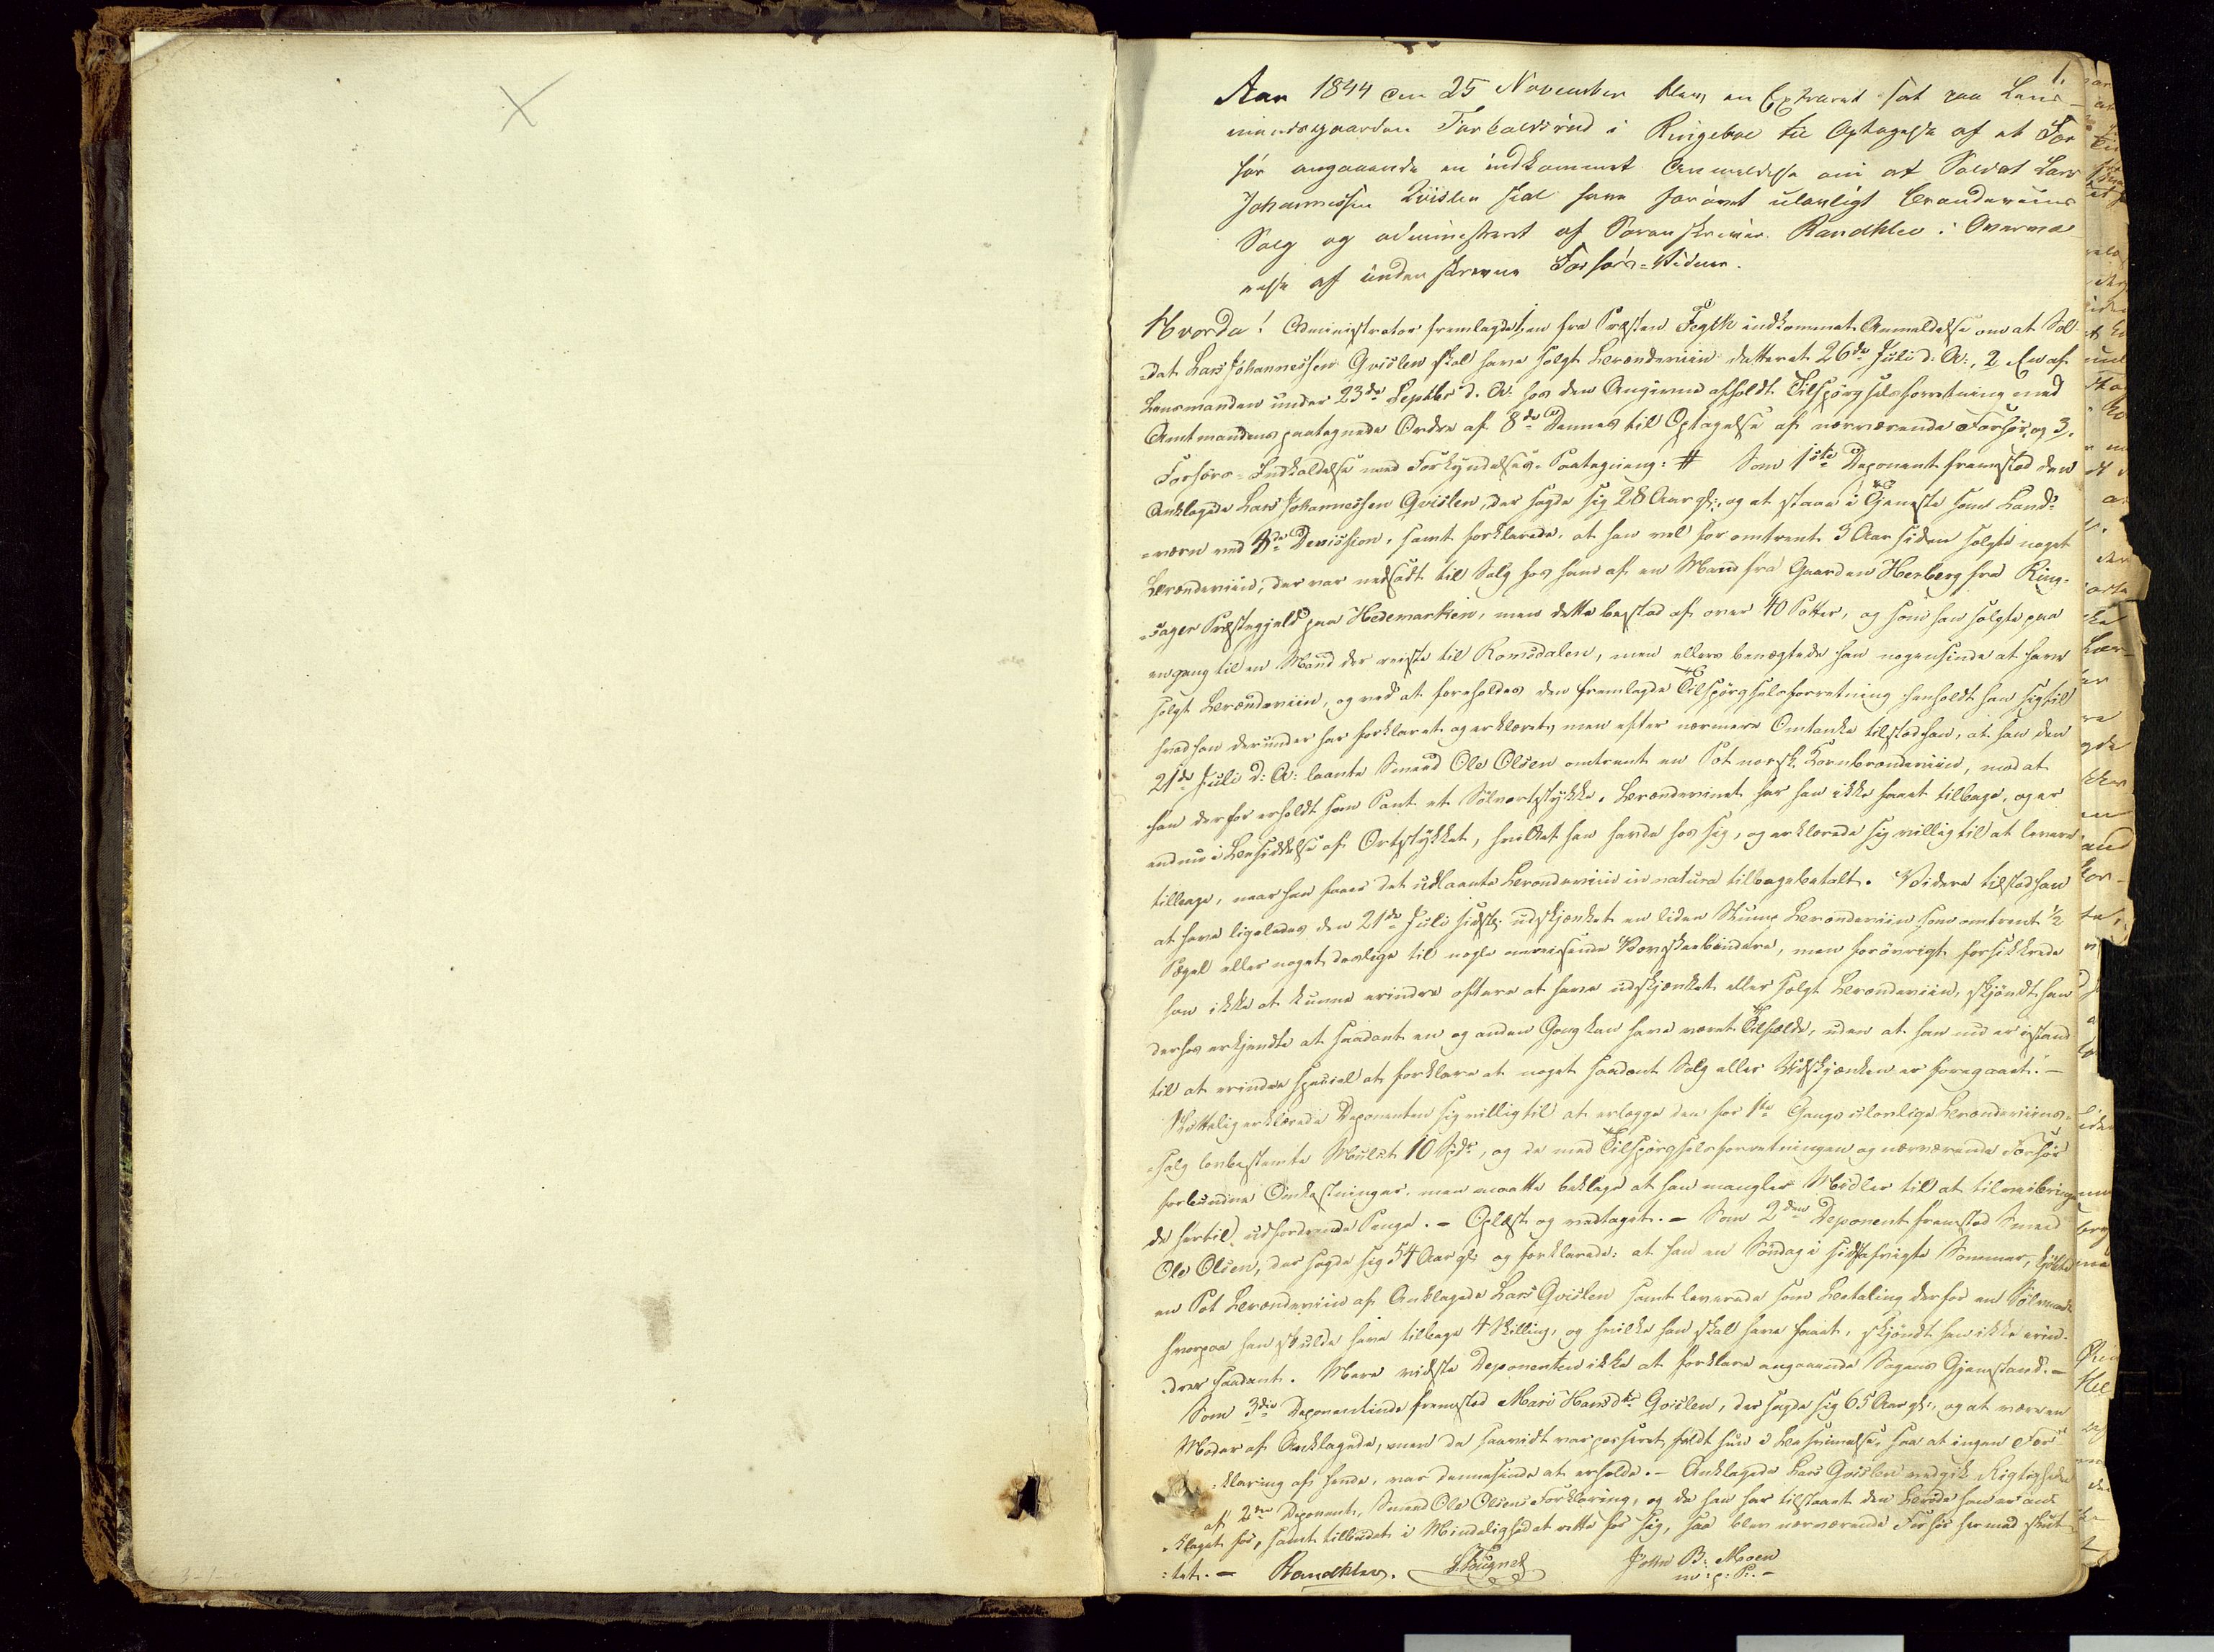 1.
Aar 1844 den 25 November blev en Extraret sat paa Lens-
mandsgaarden i Ringeboe til Optagelse af et For
hør angaaende en indkommet Anmeldelse om at Soldat Lars
Johannessen Qvislen skal have forøvet ulovligt Brændeviins
Salg og administreret af Sorenskriver Randklev i Overvæ-
relse af underskrevne Forhørs-Vidner.
Hvorda! Administrator fremlagde 1, en fra Præsten indkommet Anmeldelse om at Sol-
dat Lars Johannessen Qvislen skal have solgt Brændeviin datteret 26de Juli d. A:, 2, En af
Lensmanden under 23de Septbr d. A. hos den Angivne afholdt Tilspørgselsforretning med
Amtmandens paategnede Ordre af 8de Dennes til Optagelse af nærværende Forhør, og 3,
Forhørs-Indkaldelse med Forkyndelses-Paategning: # Som 1ste Deponent fremstod den
Anklagede Lars Johannessen Qvislen, der sagde sig 28 Aar gl:, og at staae i Tjeneste som Land-
-værn ved Devission, samt forklarede, at han vel for omtrent 3 Aar siden solgte noget
Brændeviin, der var nedsadt til Salg hos ham af en Mand fra Gaarden Herberg fra Ring-
-sager Præstegjeld paa Hedemarken, men dette bestod af over 40 Potter, og som han solgte paa
engang til en Mand der reiste til Romsdalen, men ellers benægtede han nogensinde at have
solgt Brændeviin, og ved at foreholdes den fremlagde Tilspørgselsforretning henholdt han sig til
hvad han derunder har forklaret og erklæret, men efter nærmere Omtanke tilstod han, at han den
21de Juli d: A: laante Smed Ole Olsen omtrent en Pot norsk Kornbrændeviin, mod at
han derfor erholdt som Pant et Sølvortstykke. Brændevinet har han ikke faaet tilbage, og er
endnu i Besiddelse af Ortstykket, hvilket han havde hos sig, og erklærede sig villig til at levere
tilbage, naar han faaer det udlaante Brændeviin in natura tilbagebetalt. Videre tilstod han
at have ligeledes den 21de Juli sidstl: udskjænket en liden Skump Brændeviin som omtrent ½
Pægel eller noget deslige til nogle omreisende, men forøvrigt forsikkrede
han ikke at kunne erindre oftere at have udskjænket eller solgt Brændeviin, skjøndt han
derhos erkjendte at saadant en og anden Gang kan have været Tilfælde, uden at han nu er istand
til at erindre special at forklare at noget saadant Salg eller Udskjænken er foregaaet. -
Sluttelig erklærede Deponenten sig villig til at erlægge den for 1ste Gangs ulovlige Brændeviins-
-salg lovbestemte Mulct 10 Spd:, og de med Tilspørgselsforretningen og nærværende Forhør
forbundne Omkostninger, men maatte beklage at han mangler Midler til at tilveiebringe
de hertil udfordrende Penge. - Oplæst og vedtaget. - Som 2den Deponent fremstod Smed
Ole Olsen, der sagde sig 54 Aar gl: og forklarede: at han en Søndag i sidstafvigte Sommer, kjøbte
en Pot Brændeviin af Anklagede Lars Qvislen samt leverede som Betaling derfor en
hvorpaa han skulde have tilbage 4 Skilling, og hvilke han skal have faaet, skjøndt han ikke erin-
drer saadant. Mere vidste Deponenten ikke at forklare angaaende Sagens Gjenstand. -
Som 3die Deponentinde fremstod Mari Hansdtr Qvislen, der sagde sig 65 Aar gl:, og at være en
Moder af Anklagede, men da saavidt var passeret faldt hun i Besvimelse, saa at ingen For-
-klaring af hende, var dennesinde at erholde. - Anklagede Lars Qvislen vedgik Rigtigheden
af 2den Deponents, Smed Ole Olsens Forklaring, og da han har tilstaaet den Brøde han er an-
klaget for, samt tilbudet i Mindelighed at rette for sig, saa blev nærværende Forhør hermed slut-
tet. - Randklev. John B: Moen
m: p: P: -